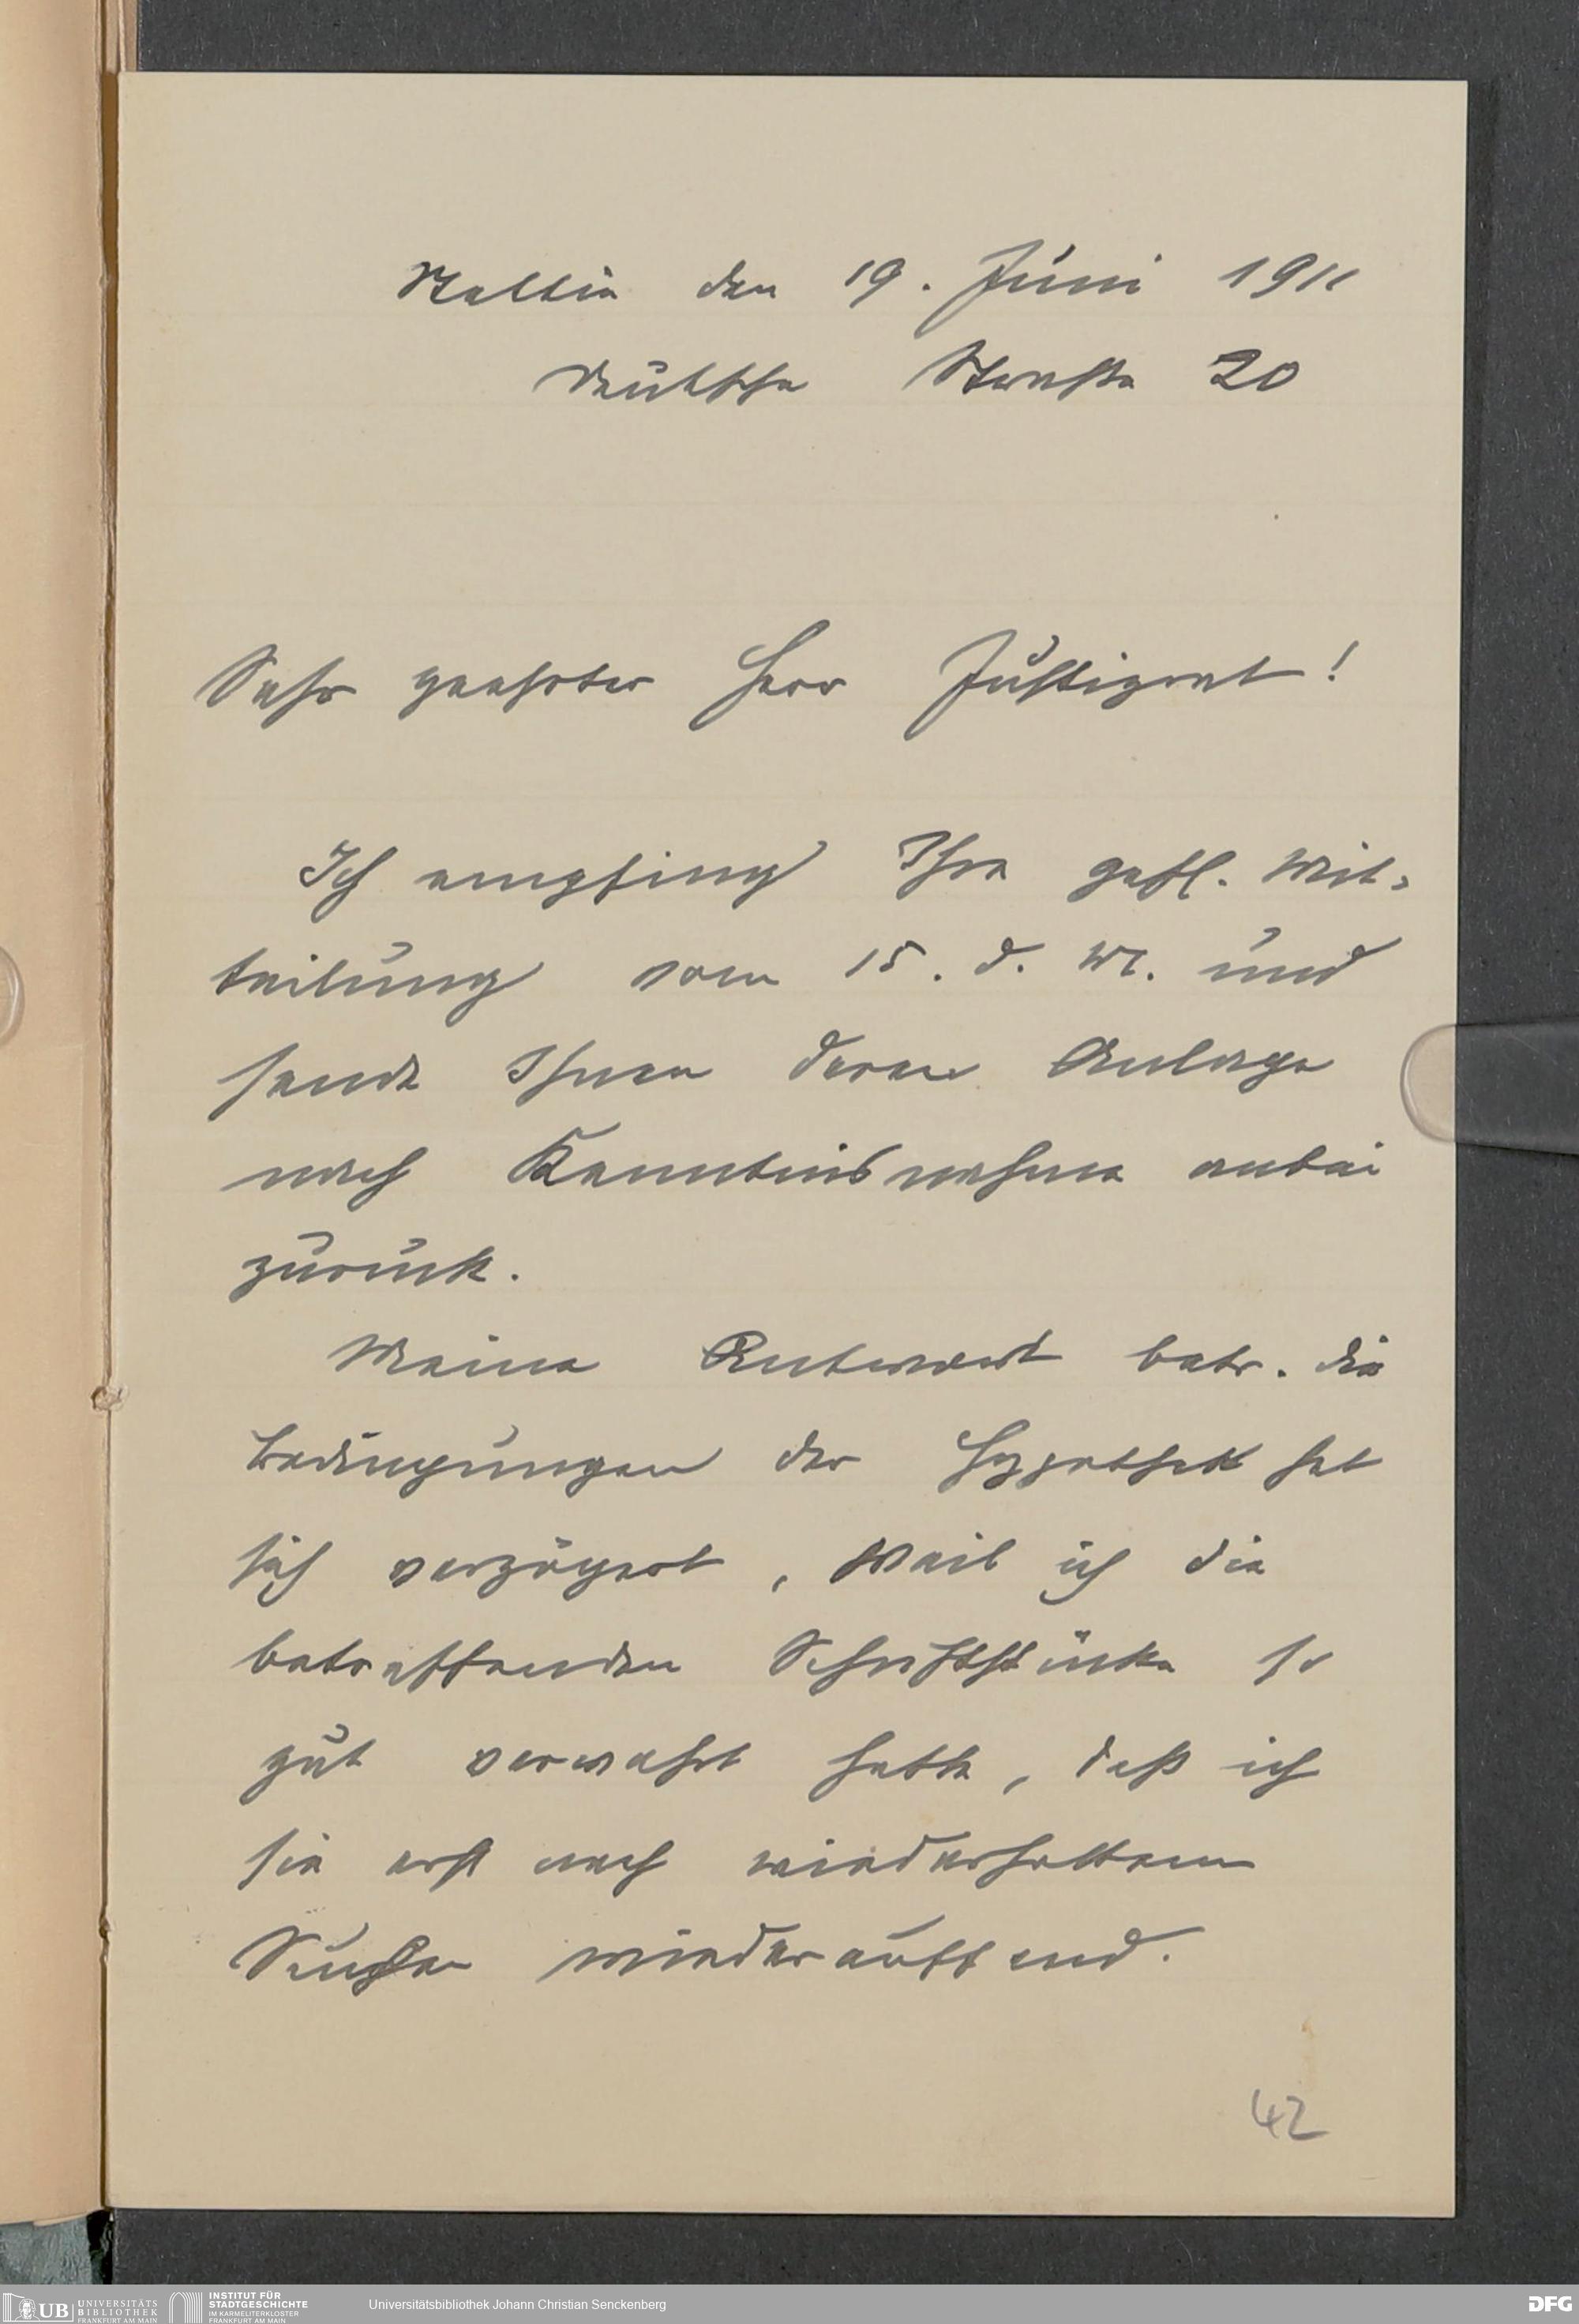 Stettin den 19. Juni 1911
Deutsche Straße 20
Sehr geehrter Herr Justizrat!
Ich empfing Ihre gefl. Mit-
teilung vom 15. d. M. und
sende Ihnen deren Anlage
nach Kenntnisnahme anbei
zurück.
Meine Antwort betr. die
Bedingungen der Hypothek hat
sich verzögert, weil ich die
betreffenden Schriftstücke so
gut verwahrt hatte, daß ich
sie erst nach wiederholtem
Suchen wiederauffand.
42
UB UNIVERSITÄTS
BIBLIOTHEK
FRANKFURT AM MAIN
INSTITUT FÜR
STADTGESCHICHTE
IM KARMELITERKLOSTER
FRANKFURT AM MAIN
Universitätsbibliothek Johann Christian Senckenberg
DFG